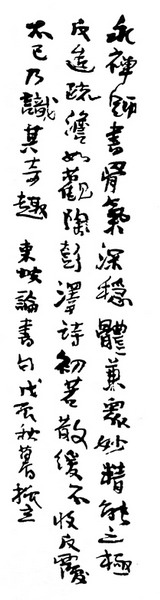 永禪師書骨氣深穩體兼眾妙精能之極
反造疏澹如觀陶彭澤詩初若散緩不收反覆
不已乃識其奇趣 東坡論書句戊辰秋暮